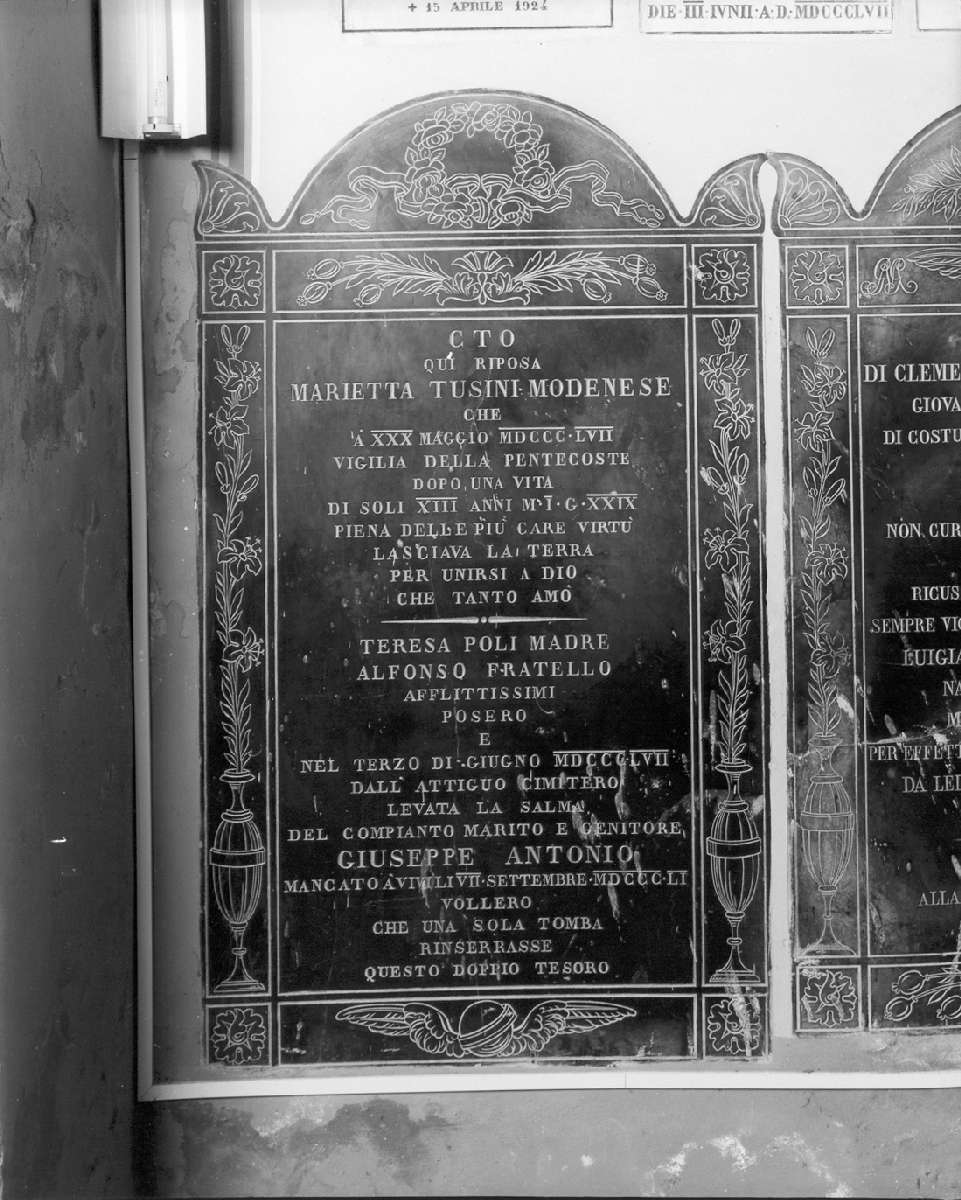 + 15 APRILE 1924
DIE·III·IVNII·A·D·MDCCCLVII
CTO
QUI RIPOSA
MARIETTA TUSINI MODENESE
CHE
A XXX MAGGIO MDCCC·LVII
VIGILIA DELLA PENTECOSTE
DOPO UNA VITA
DI SOLI XIII ANNI M·I·G·XXIX
PIENA DELLE PIÙ CARE VIRTÙ
LASCIAVA LA TERRA
PER UNIRSI A DIO
CHE TANTO AMÒ
TERESA POLI MADRE
ALFONSO FRATELLO
AFFLITTISSIMI
POSERO
E
NEL TERZO DI GIUGNO MDCCCLVII
DALL'ATTIGUO CIMITERO
LEVATA LA SALMA
DEL COMPIANTO MARITO E GENITORE
GIUSEPPE ANTONIO
MANCATO A VIVI LI VII·SETTEMBRE·MDCCC·LI
VOLLERO
CHE UNA SOLA TOMBA
RINSERRASSE
QUESTO DOPPIO TESORO
DI CLEME
GIOVA
DI COSTU
NON CUR
RICUS
SEMPRE VIG
LUIGIA
NA
M
PER EFFETT
DA LE
ALLA